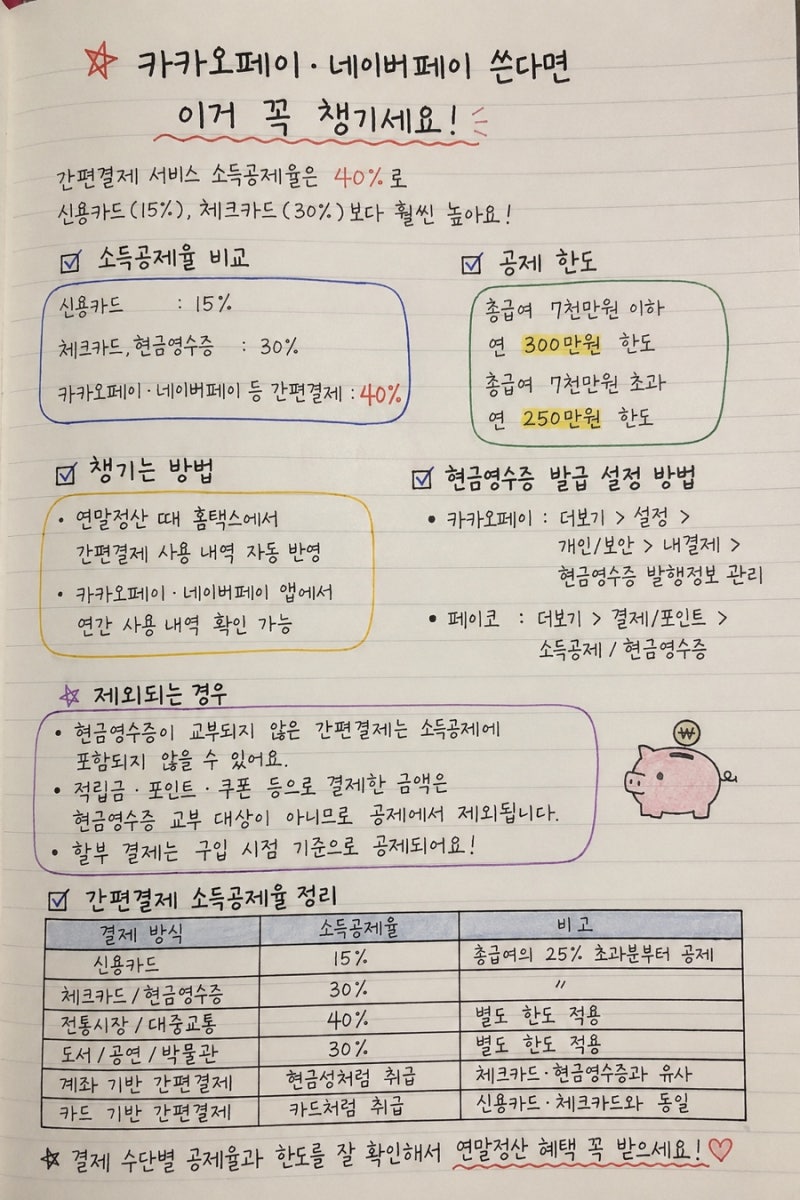 카카오페이·네이버페이 쓴다면
이거 꼭 챙기세요!
간편결제 서비스 소득공제율은 40%로
신용카드(15%), 체크카드(30%)보다 훨씬 높아요!
소득공제율 비교
신용카드 : 15%
체크카드, 현금영수증 : 30%
카카오페이·네이버페이 등 간편결제 : 40%
공제 한도
총급여 7천만원 이하
연 300만원 한도
총급여 7천만원 초과
연 250만원 한도
챙기는 방법
• 연말정산 때 홈택스에서
간편결제 사용 내역 자동 반영
• 카카오페이·네이버페이 앱에서
연간 사용 내역 확인 가능
현금영수증 발급 설정 방법
• 카카오페이 : 더보기 > 설정 >
개인/보안 > 내결제 >
현금영수증 발행정보 관리
• 페이코 : 더보기 > 결제/포인트 >
소득공제 / 현금영수증
제외되는 경우
• 현금영수증이 교부되지 않은 간편결제는 소득공제에
포함되지 않을 수 있어요.
• 적립금·포인트·쿠폰 등으로 결제한 금액은
현금영수증 교부 대상이 아니므로 공제에서 제외됩니다.
• 할부 결제는 구입 시점 기준으로 공제되어요!
₩
간편결제 소득공제율 정리
결제 방식 소득공제율 비고
신용카드 15% 총급여의 25% 초과분부터 공제
체크카드/현금영수증 30% 〃
전통시장/대중교통 40% 별도 한도 적용
도서/공연/박물관 30% 별도 한도 적용
계좌 기반 간편결제 현금성처럼 취급 체크카드·현금영수증과 유사
카드 기반 간편결제 카드처럼 취급 신용카드·체크카드와 동일
결제 수단별 공제율과 한도를 잘 확인해서 연말정산 혜택 꼭 받으세요!♡